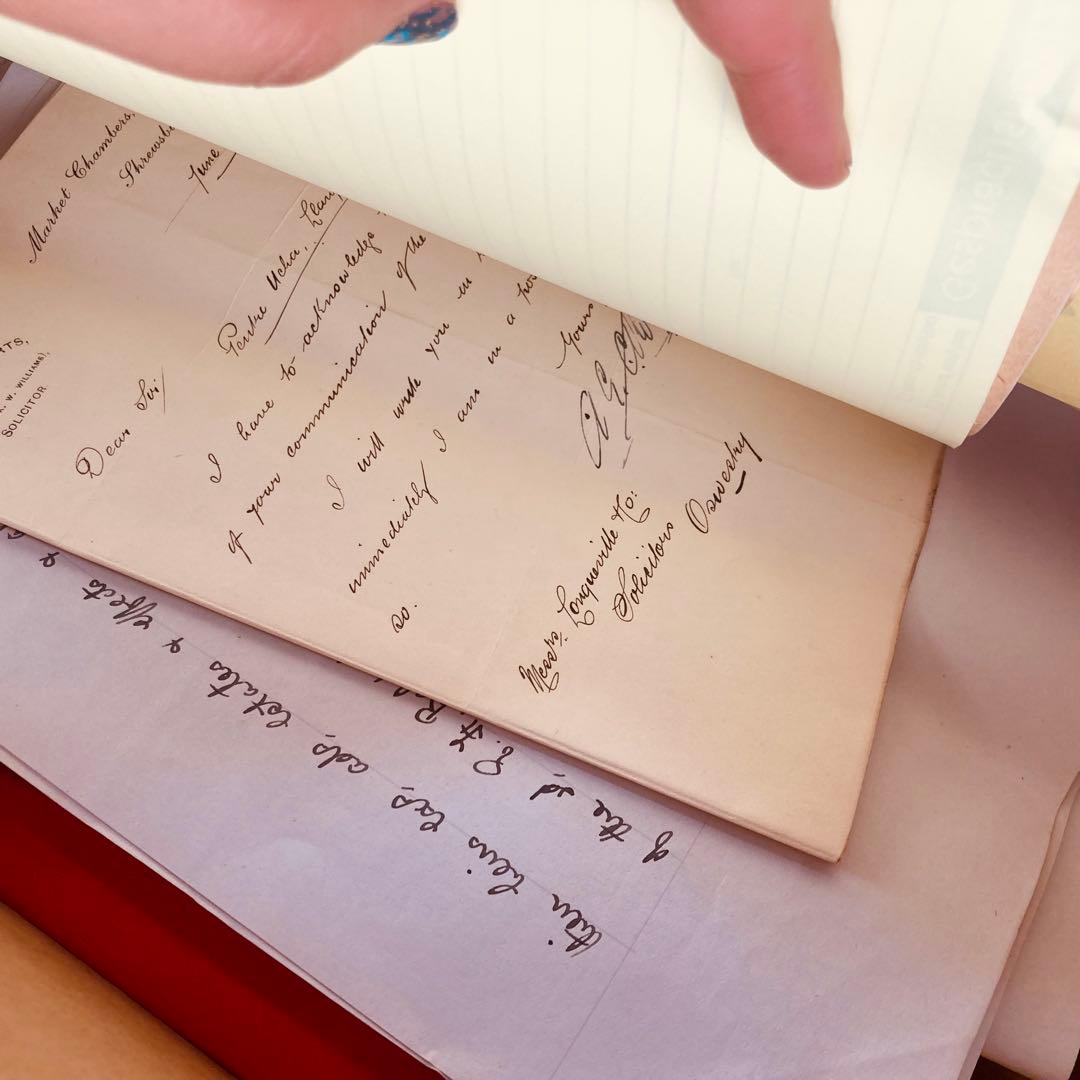 Market Chambers,
Shrewsbu
June
TS,
. W. WILLIAMS),
SOLICITOR
Dear Sir/
Pentre Ucha, Llan
I have to acknowledge
of your communication of the
I will write you in
immediately I am in a pos
so.
Yours
Messrs. Longueville & Co:
Solicitors
Oswestry
of the sd
their heirs exs ads estates & effects &